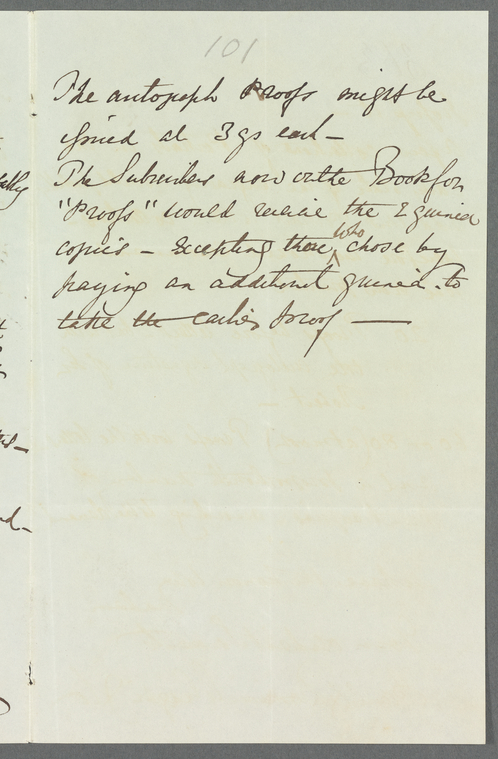 101
The autograph Proofs might be
issued at 3 gs each –
The Subscribers now on the Book for
"Proofs" would receive the 2 guinea
copies – excepting those who chose by
paying an additional guinea - to
take the earlier proof —